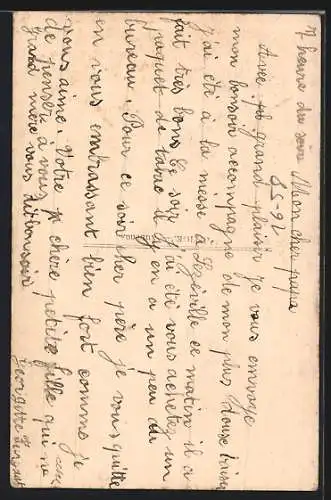 7 heure du soir Mon cher papa
Avec grand plaisir Je vous envoye
mon bonsoir accompagne de mon plus doux baiser
j'ai été à la messe à ce matin il a
fait très bons Ce soir j'ai été vous achetez un
paquet de tabac il y en a un peu au
bureau. Pour ce soir cher père je vous quitte
en vous embrassant bien fort comme je
vous aime. Votre chère petite fille qui ne
de penser à vous
grand mère vous dit bonsoir